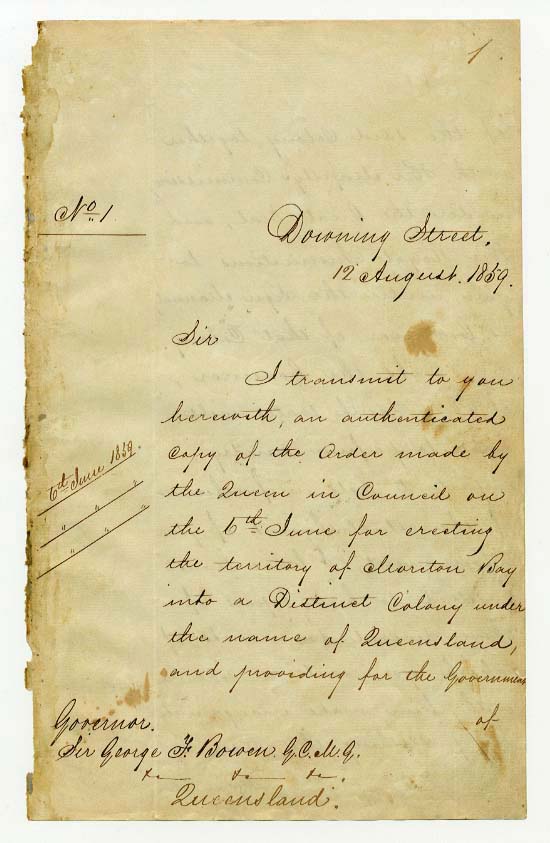 1
No. 1.
Downing Street.
12 August. 1859.
Sir
I transmit to you
herewith, an authenticated
Copy of the Order made by
the Queen in Council on
the 6th June for erecting
the territory of Moreton Bay
into a Distinct Colony under
the name of Queensland,
and providing for the Government
of
6th June 1859.
" " "
" " "
Governor.
Sir George F. Bowen. G.C.M.G.
&c &c &c
Queensland.